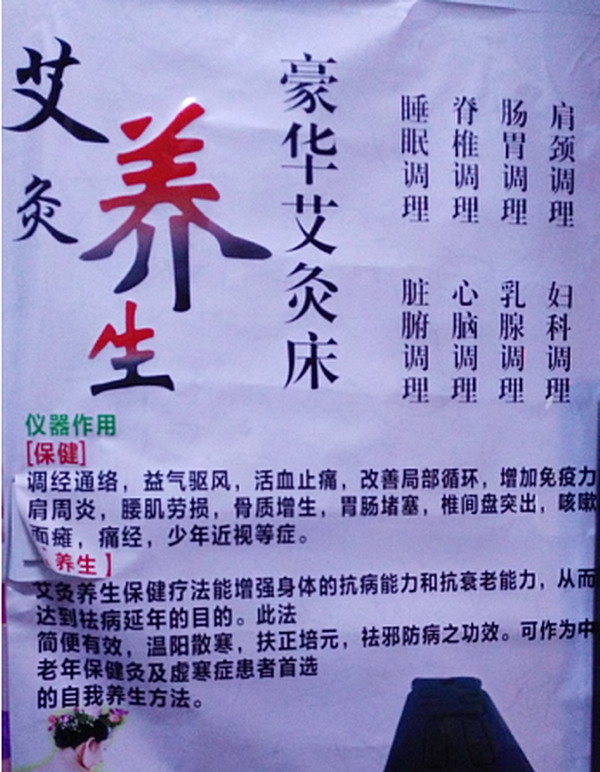 艾灸
养生
豪华艾灸床
肩颈调理
肠胃调理
脊椎调理
睡眠调理
妇科调理
乳腺调理
心脑调理
脏腑调理
仪器作用
[保健]
调经通络，益气驱风，活血止痛，改善局部循环，增加免疫力
肩周炎，腰肌劳损，骨质增生，胃肠堵塞，椎间盘突出，咳嗽
面瘫，痛经，少年近视等症。
养生】
艾灸养生保健疗法能增强身体的抗病能力和抗衰老能力，从而
达到祛病延年的目的。此法
简便有效，温阳散寒，扶正培元，祛邪防病之功效。可作为中
老年保健灸及虚寒症患者首选
的自我养生方法。